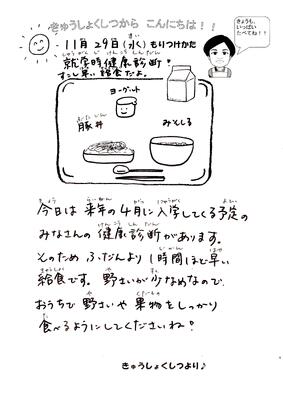 きゅうしょくしつから こんにちは！！
きょうも、
いっぱい
たべてね！！
11月29日(水) もりつけかた
就学時健康診断！
すこし早い給食だよ。
ヨーグルト
豚丼
みそしる
今日は来年の4月に入学してくる予定の
みなさんの健康診断があります。
そのため ふだんより1時間ほど早い
給食です。野さいが少なめなので、
おうちで野さいや果物をしっかり
食べるようにしてくださいね！
きゅうしょくしつより♪